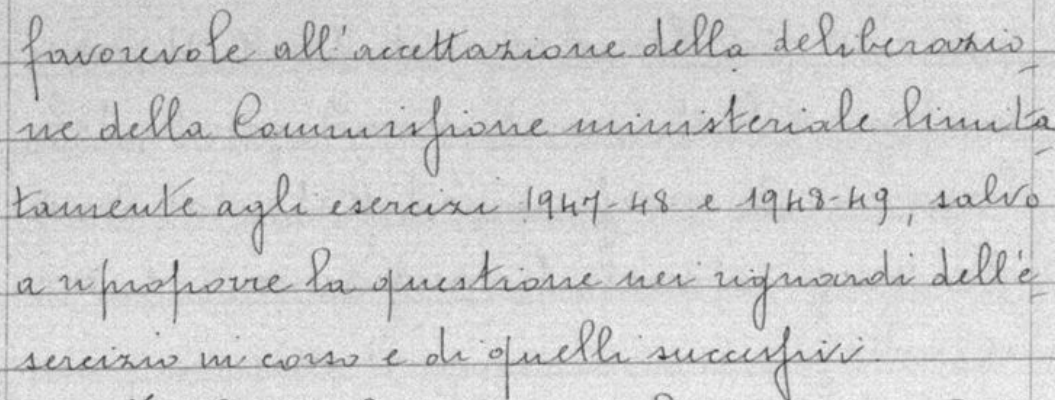 favorevole all'accettazione della deliberazio
ne della Commissione ministeriale limita
tamente agli esercizi 1947-48 e 1948-49, salvo
a riproporre la questione nei riguardi dell'e
sercizio in corso e di quelli successivi.